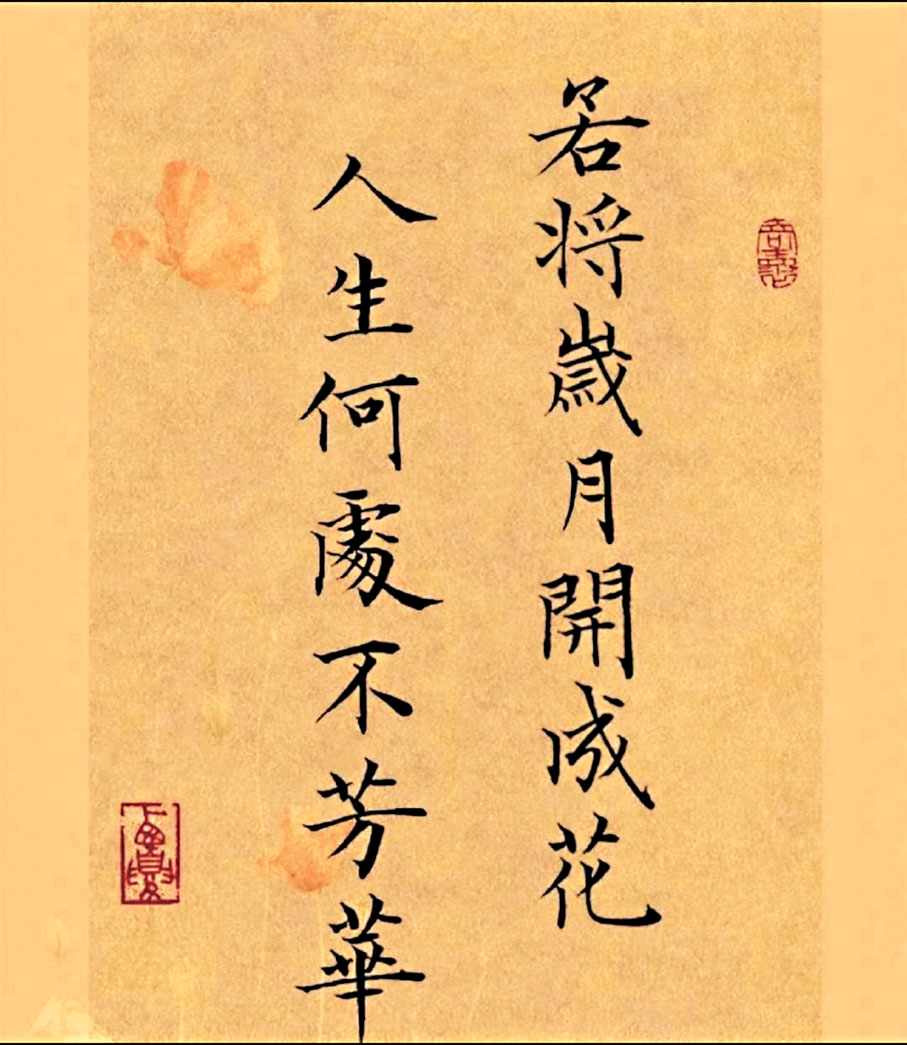 若将歳月開成花
人生何處不芳華